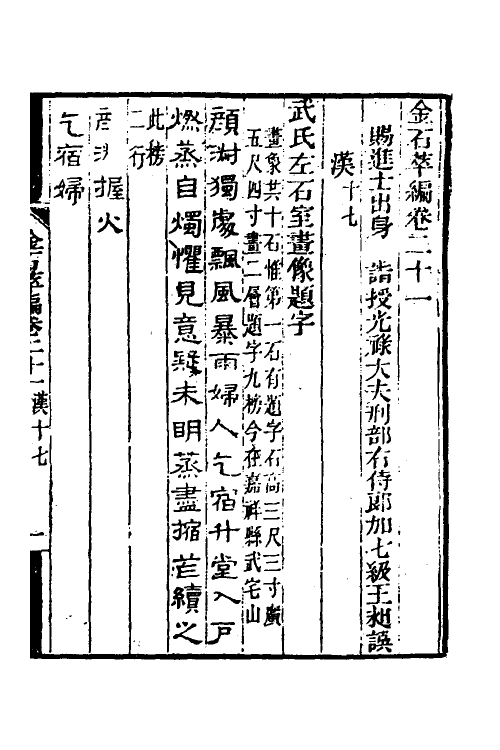 金石萃編卷二十一
賜進士出身 誥授光祿大夫刑部右侍郎加七級王昶譔
漢十七
武氏左石室畫像題字
畫象共十石惟第一石有題字石高三尺三寸廣
五尺四寸畫二層題字九榜今在嘉祥縣武宅山
顏淑獨處飄風暴雨婦人乞宿升堂入戶
燃蒸自燭懼見意疑未明蒸盡摍苲續之
此榜
二行
顏淑握火
乞宿婦
金石萃編卷二十一 漢十七
一